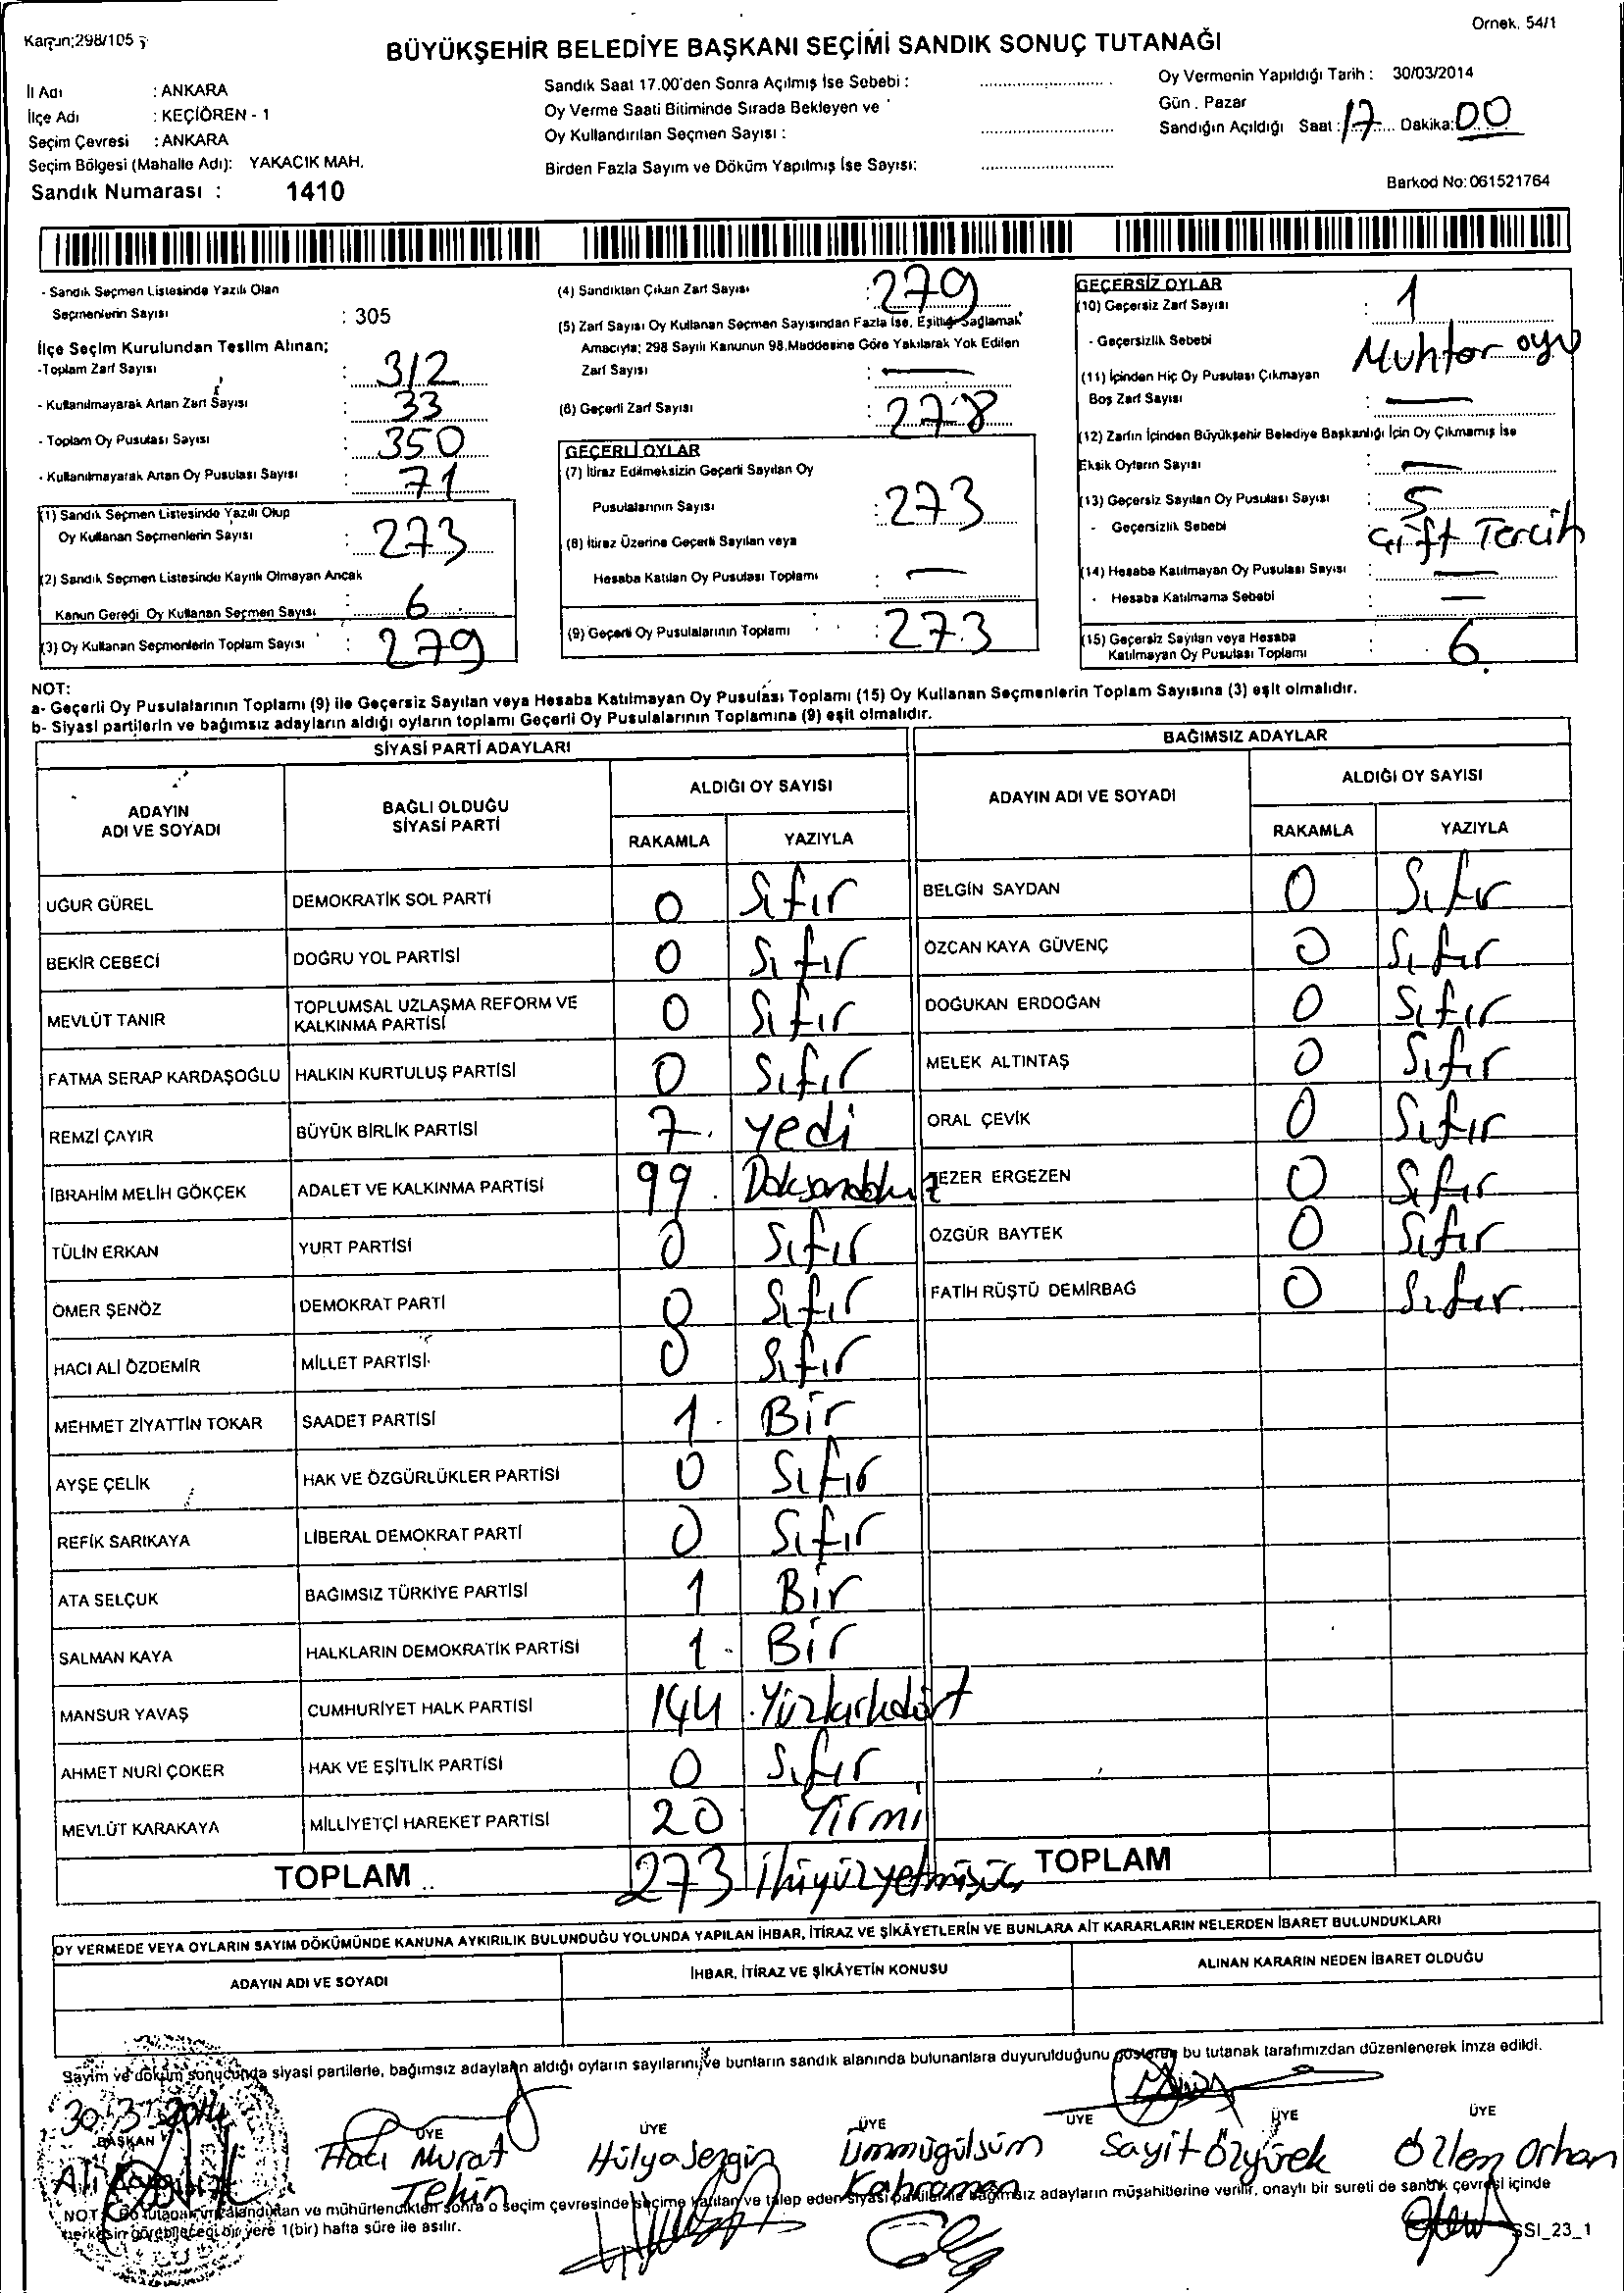 Örnek. 54/1
BÜYÜKŞEHİR BELEDİYE BAŞKANI SEÇİMİ SANDIK SONUÇ TUTANAĞI
İl Adı : ANKARA
İlçe Adı : KEÇİÖREN - 1
Seçim Çevresi : ANKARA
Seçim Bölgesi (Mahalle Adı): YAKACIK MAH.
Sandık Numarası : 1410
Sandık Saat 17.00'den Sonra Açılmış İse Sebebi :
Oy Verme Saati Bitiminde Sırada Bekleyen ve
Oy Kullandırılan Seçmen Sayısı :
Birden Fazla Sayım ve Döküm Yapılmış İse Sayısı:
Oy Vermenin Yapıldığı Tarih : 30/03/2014
Gün . Pazar
Sandığın Açıldığı Saat : 17 Dakika: 00
Barkod No: 061521764
- Sandık Seçmen Listesinde Yazılı Olan
Seçmenlerin Sayısı : 305
İlçe Seçim Kurulundan Teslim Alınan;
-Toplam Zarf Sayısı : 312
- Kullanılmayarak Artan Zarf Sayısı : 33
- Toplam Oy Pusulası Sayısı : 350
- Kullanılmayarak Artan Oy Pusulası Sayısı : 71
(1) Sandık Seçmen Listesinde Yazılı Olup
Oy Kullanan Seçmenlerin Sayısı : 273
(2) Sandık Seçmen Listesinde Kayıtlı Olmayan Ancak
Kanun Gereği Oy Kullanan Seçmen Sayısı : 6
(3) Oy Kullanan Seçmenlerin Toplam Sayısı : 279
(4) Sandıktan Çıkan Zarf Sayısı : 279
(5) Zarf Sayısı Oy Kullanan Seçmen Sayısından Fazla İse, Eşitliği Sağlamak
Amacıyla; 298 Sayılı Kanunun 98.Maddesine Göre Yakılarak Yok Edilen
Zarf Sayısı : —
(6) Geçerli Zarf Sayısı : 278
GEÇERLİ OYLAR
(7) İtiraz Edilmeksizin Geçerli Sayılan Oy
Pusulalarının Sayısı : 273
(8) İtiraz Üzerine Geçerli Sayılan veya
Hesaba Katılan Oy Pusulası Toplamı : —
(9) Geçerli Oy Pusulalarının Toplamı : 273
GEÇERSİZ OYLAR
(10) Geçersiz Zarf Sayısı : 1
- Geçersizlik Sebebi Muhtar oyu
(11) İçinden Hiç Oy Pusulası Çıkmayan
Boş Zarf Sayısı : —
(12) Zarfın İçinden Büyükşehir Belediye Başkanlığı İçin Oy Çıkmamış İse
Eksik Oyların Sayısı : —
(13) Geçersiz Sayılan Oy Pusulası Sayısı : 5
- Geçersizlik Sebebi : Çift Tercih
(14) Hesaba Katılmayan Oy Pusulası Sayısı : —
- Hesaba Katılmama Sebebi : —
(15) Geçersiz Sayılan veya Hesaba
Katılmayan Oy Pusulası Toplamı : 6.
NOT:
a- Geçerli Oy Pusulalarının Toplamı (9) ile Geçersiz Sayılan veya Hesaba Katılmayan Oy Pusulası Toplamı (15) Oy Kullanan Seçmenlerin Toplam Sayısına (3) eşit olmalıdır.
b- Siyasi partilerin ve bağımsız adayların aldığı oyların toplamı Geçerli Oy Pusulalarının Toplamına (9) eşit olmalıdır.
SİYASİ PARTİ ADAYLARI
ADAYIN ADI VE SOYADI BAĞLI OLDUĞU SİYASİ PARTİ ALDIĞI OY SAYISI
RAKAMLA YAZIYLA
UĞUR GÜREL DEMOKRATİK SOL PARTİ 0 Sıfır
BEKİR CEBECİ DOĞRU YOL PARTİSİ 0 Sıfır
MEVLÜT TANIR TOPLUMSAL UZLAŞMA REFORM VE KALKINMA PARTİSİ 0 Sıfır
FATMA SERAP KARDAŞOĞLU HALKIN KURTULUŞ PARTİSİ 0 Sıfır
REMZİ ÇAYIR BÜYÜK BİRLİK PARTİSİ 7. yedi
İBRAHİM MELİH GÖKÇEK ADALET VE KALKINMA PARTİSİ 99. Doksandokuz
TÜLİN ERKAN YURT PARTİSİ 0 Sıfır
ÖMER ŞENÖZ DEMOKRAT PARTİ 0 Sıfır
HACI ALİ ÖZDEMİR MİLLET PARTİSİ 0 Sıfır
MEHMET ZİYATTİN TOKAR SAADET PARTİSİ 1. Bir
AYŞE ÇELİK HAK VE ÖZGÜRLÜKLER PARTİSİ 0 Sıfır
REFİK SARIKAYA LİBERAL DEMOKRAT PARTİ 0 Sıfır
ATA SELÇUK BAĞIMSIZ TÜRKİYE PARTİSİ 1 Bir
SALMAN KAYA HALKLARIN DEMOKRATİK PARTİSİ 1. Bir
MANSUR YAVAŞ CUMHURİYET HALK PARTİSİ 144. Yüzkırkdört
AHMET NURİ ÇOKER HAK VE EŞİTLİK PARTİSİ 0 Sıfır
MEVLÜT KARAKAYA MİLLİYETÇİ HAREKET PARTİSİ 20 Yirmi
TOPLAM 273 İkiyüzyetmişüç
BAĞIMSIZ ADAYLAR
ADAYIN ADI VE SOYADI ALDIĞI OY SAYISI
RAKAMLA YAZIYLA
BELGİN SAYDAN 0 Sıfır
ÖZCAN KAYA GÜVENÇ 0 Sıfır
DOĞUKAN ERDOĞAN 0 Sıfır
MELEK ALTINTAŞ 0 Sıfır
ORAL ÇEVİK 0 Sıfır
TEZER ERGEZEN 0 Sıfır
ÖZGÜR BAYTEK 0 Sıfır
FATİH RÜŞTÜ DEMİRBAĞ 0 Sıfır.
TOPLAM
OY VERMEDE VEYA OYLARIN SAYIM DÖKÜMÜNDE KANUNA AYKIRILIK BULUNDUĞU YOLUNDA YAPILAN İHBAR, İTİRAZ VE ŞİKÂYETLERİN VE BUNLARA AİT KARARLARIN NELERDEN İBARET BULUNDUKLARI
ADAYIN ADI VE SOYADI İHBAR, İTİRAZ VE ŞİKÂYETİN KONUSU ALINAN KARARIN NEDEN İBARET OLDUĞU
Sayım ve döküm sonucunda siyasi partilerle, bağımsız adayların aldığı oyların sayılarını ve bunların sandık alanında bulunanlara duyurulduğunu gösteren bu tutanak tarafımızdan düzenlenerek imza edildi.
30.3.2014
BAŞKAN ÜYE ÜYE ÜYE ÜYE ÜYE ÜYE
Ali
Hacı Murat Tekin
Hülya Sezgin
Ümmügülsüm Kahraman
Sayit Özyürek
Özlem Orhan
NOT: Bu tutanak imzalandıktan ve mühürlendikten sonra o seçim çevresinde seçime katılan ve talep eden siyasi partilerle bağımsız adayların müşahitlerine verilir, onaylı bir sureti de sandık çevresi içinde
herkesin görebileceği bir yere 1(bir) hafta süre ile asılır.
SSI_23_1